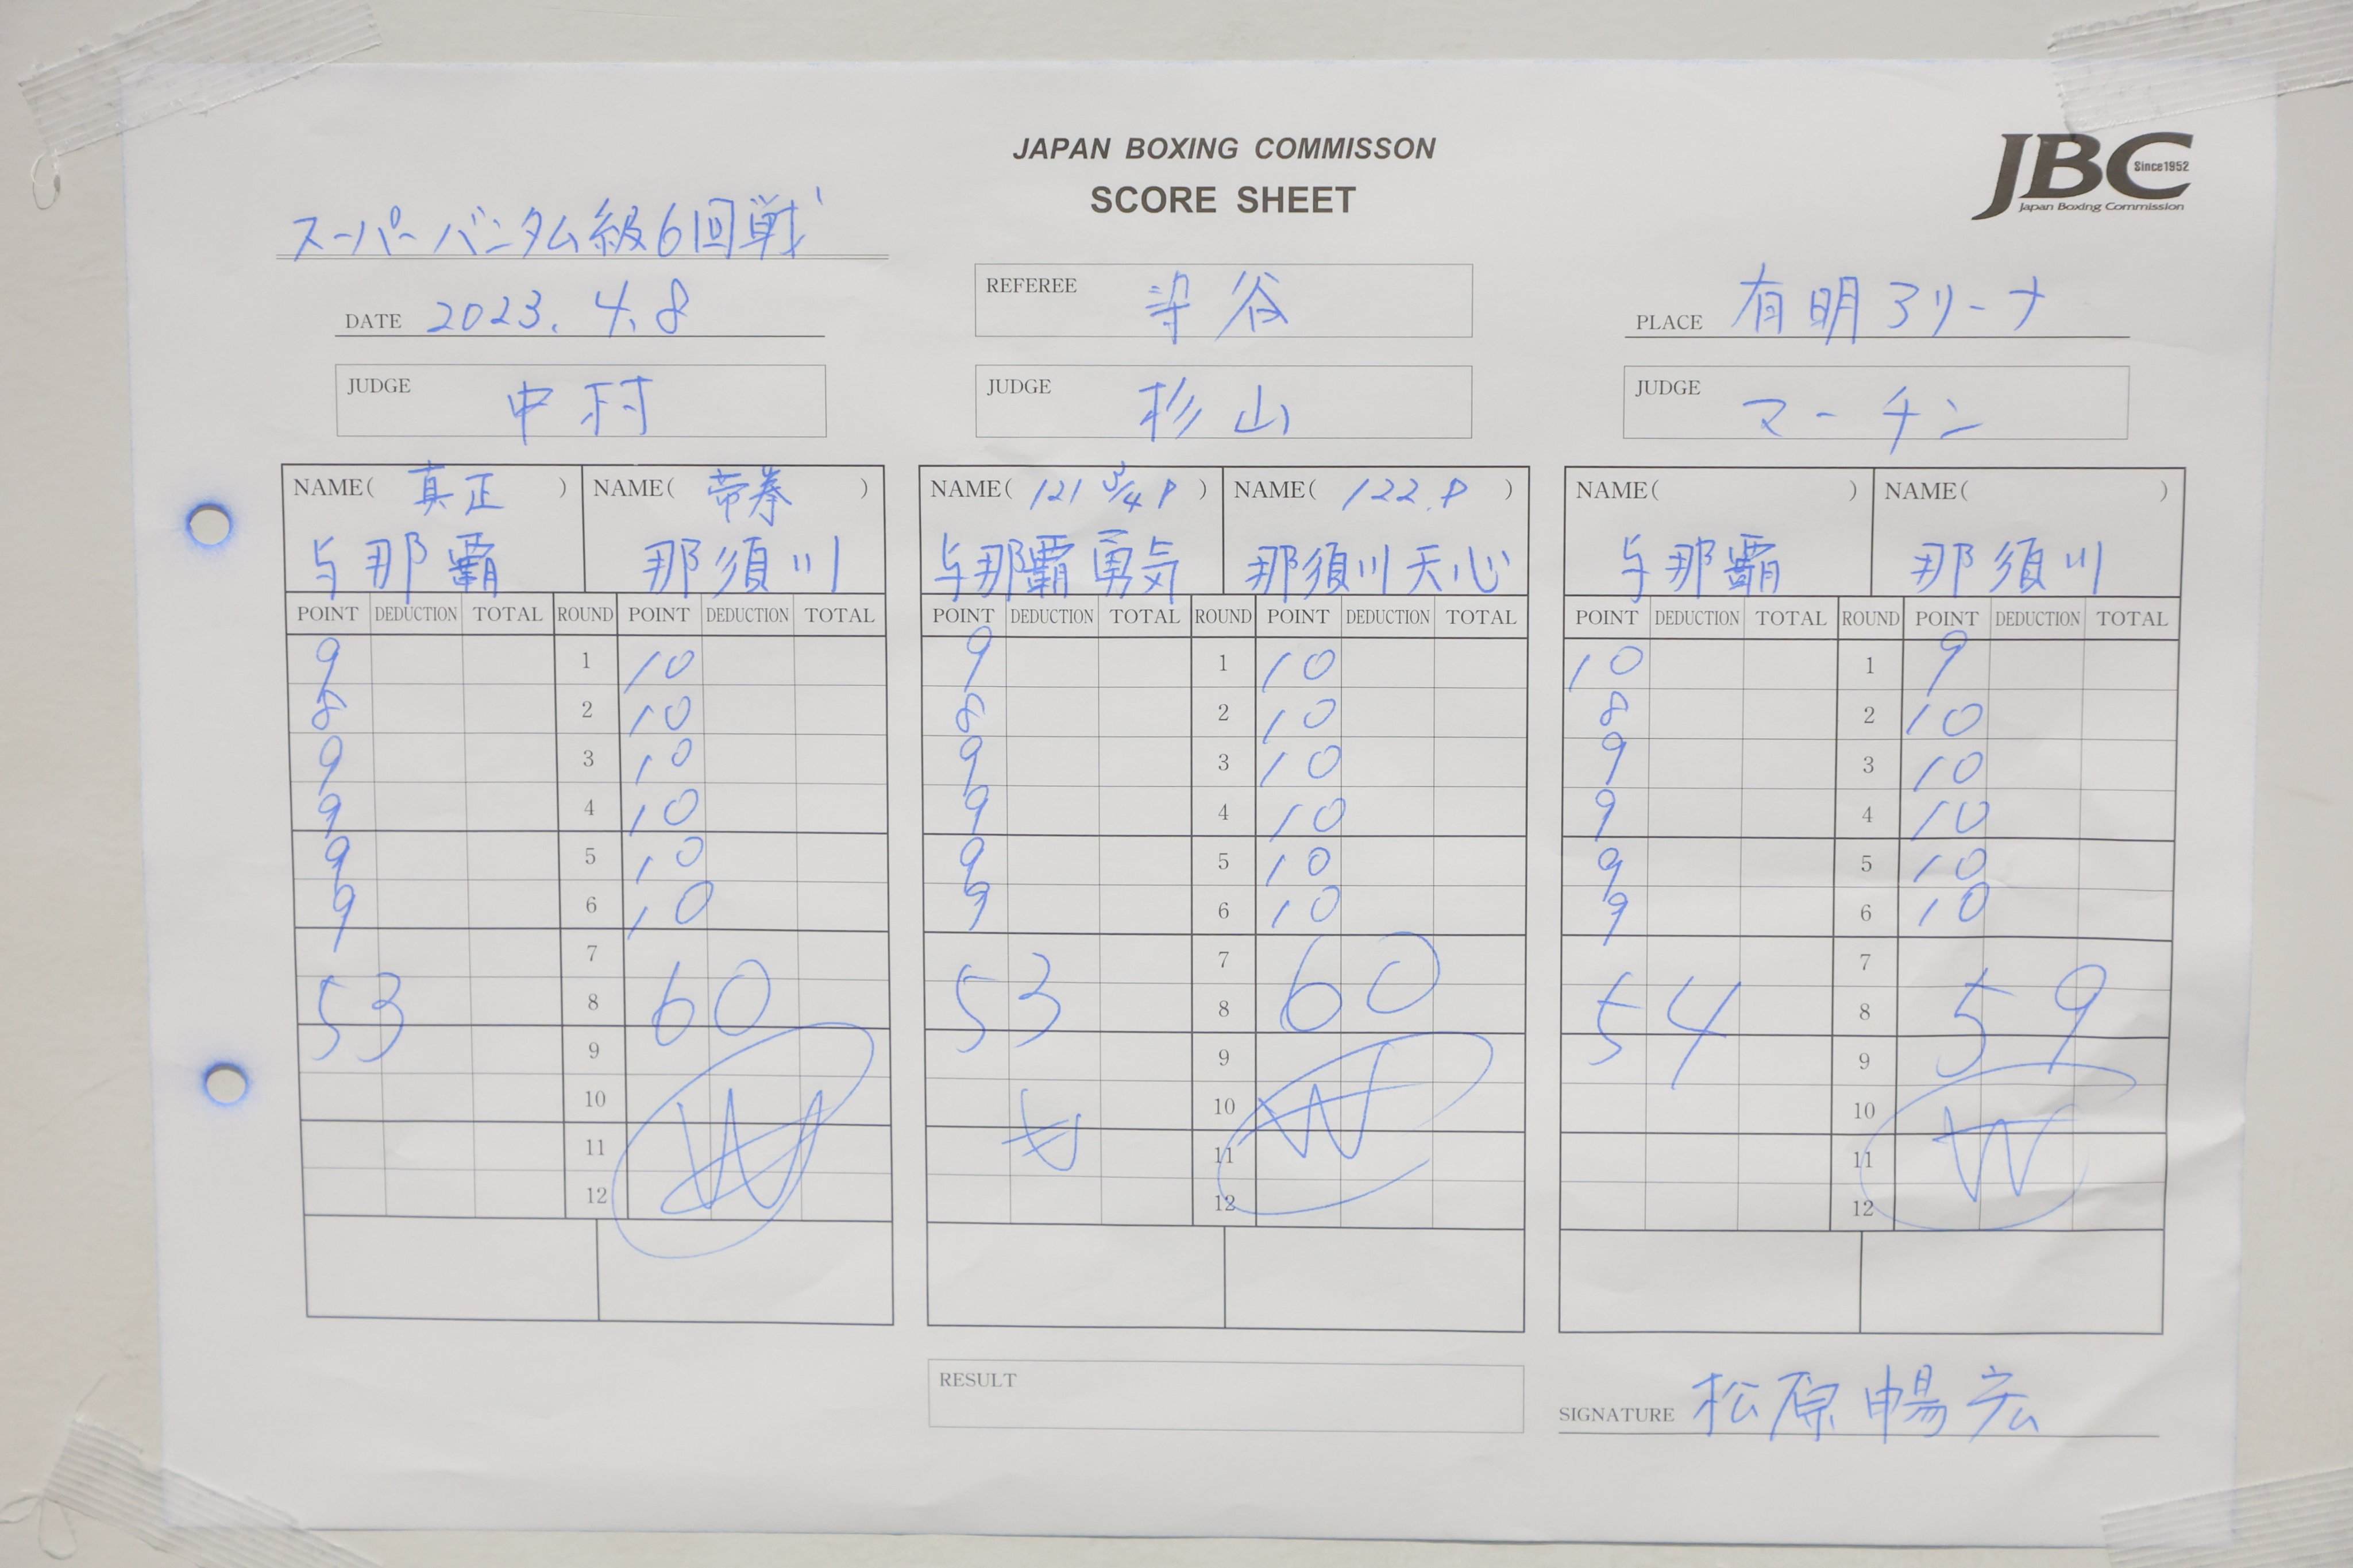 JAPAN BOXING COMMISSON
SCORE SHEET
JBC
Since1952
Japan Boxing Commission
スーパーバンタム級6回戦
DATE 2023.4.8
REFEREE 染谷
PLACE 有明アリーナ
JUDGE 中村
JUDGE 杉山
JUDGE マーチン
NAME( 真正 ) NAME( 帝拳 ) NAME( 121 3/4 P ) NAME( 122.P ) NAME( ) NAME( )
与那覇 那須川 与那覇勇気 那須川天心 与那覇 那須川
POINT DEDUCTION TOTAL ROUND POINT DEDUCTION TOTAL POINT DEDUCTION TOTAL ROUND POINT DEDUCTION TOTAL POINT DEDUCTION TOTAL ROUND POINT DEDUCTION TOTAL
9 1 10 9 1 10 10 1 9
8 2 10 8 2 10 8 2 10
9 3 10 9 3 10 9 3 10
9 4 10 9 4 10 9 4 10
9 5 10 9 5 10 9 5 10
9 6 10 9 6 10 9 6 10
7 7 7
53 8 60 53 8 60 54 8 59
9 9 9
10 W 10 W 10 W
11 11 11
12 12 12
RESULT
SIGNATURE 松原暢宏